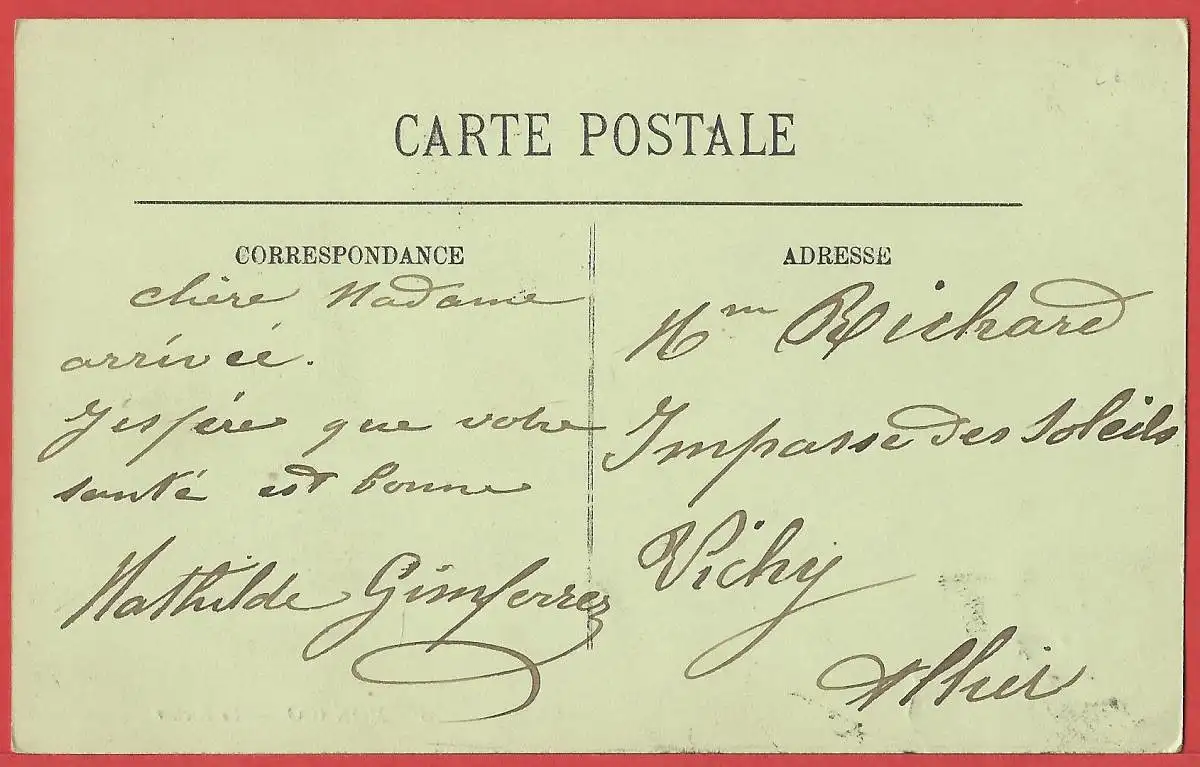 CARTE POSTALE
CORRESPONDANCE
chère Madame
arrivée.
J'espère que votre
santé est bonne
Mathilde Gimferrer
ADRESSE
Mm Richard
Impasse des Soleils
Vichy
Allier